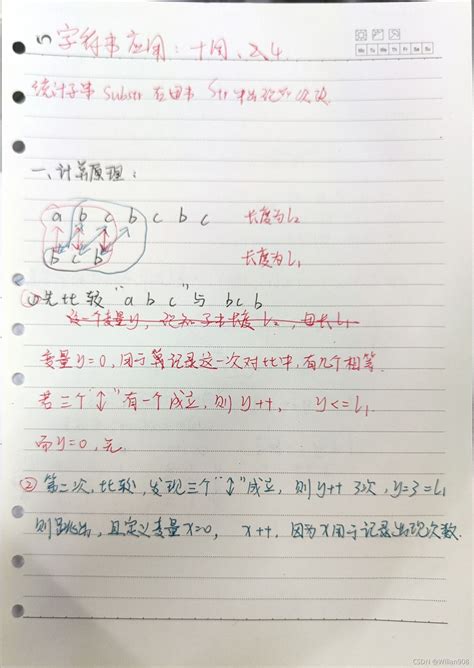 字符串应用:
Mo Tu We Th Fr Sa Su
统计子串 Substr 在母串 Str 中出现的次数
一、计算原理:
a b c b c b c 长度为l₂
b c b 长度为l₁
①先比较"a b c"与 bcb
设一个变量y,已知子串长度l₂,母长l₁
变量y=0,用于算记录这一次对比中,有几个相等.
若三个"↕"有一个成立,则y++, y<=l₁.
而y=0,无
②第二次,比较,发现三个"↕"成立,则y++ 3次,y=3=l₁
则跳出,且定义变量x=0, x++,因为x用于记录出现次数.
CSDN @Willan908